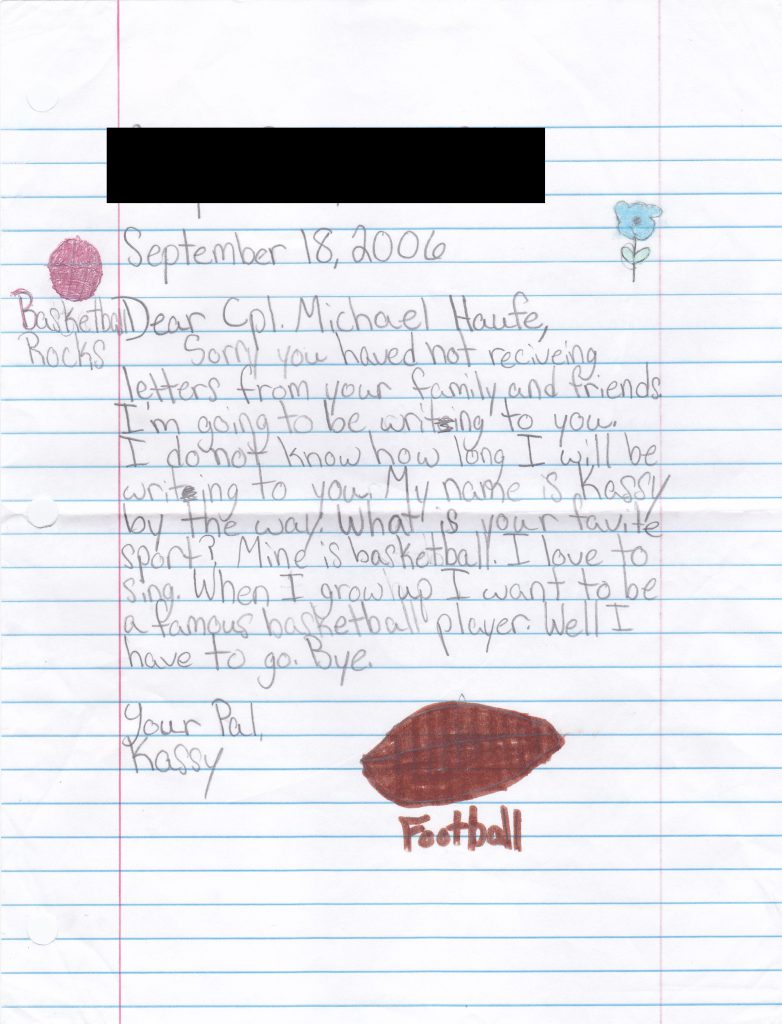 September 18, 2006
Basketball
Rocks
Dear Cpl. Michael Haufe,
Sorry you haved not reciveing
letters from your family and friends.
I'm going to be writing to you.
I do not know how long I will be
writing to you. My name is Kassy
by the way. What is your favite
sport? Mine is basketball. I love to
sing. When I grow up I want to be
a famous basketball player. Well I
have to go. Bye.
Your Pal,
Kassy
Football